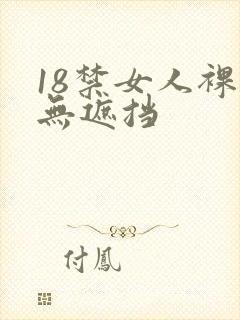 18禁女人裸
無遮挡
付鳳